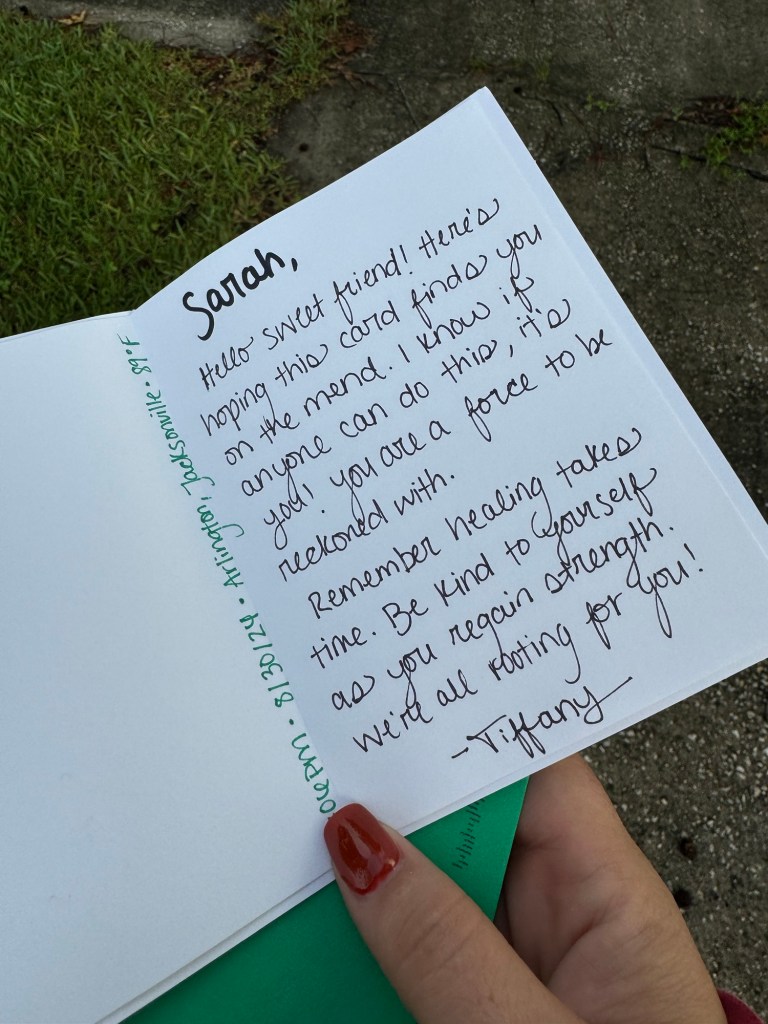 Sarah,
Hello sweet friend! Here's
hoping this card finds you
on the mend. I know if
anyone can do this, it's
you! You are a force to be
reckoned with.
Remember healing takes
time. Be kind to yourself
as you regain strength.
We're all rooting for you!
-Tiffany
PM • 8/30/24 • Arlington, Jacksonville • 89°F